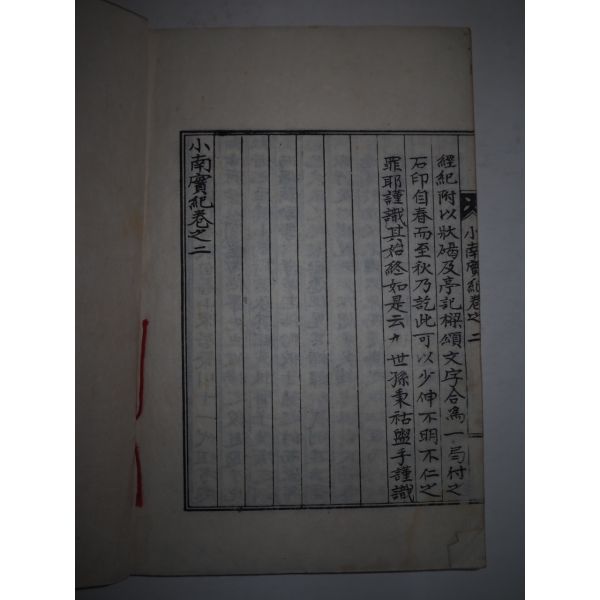 小南實紀卷之二
經紀附以狀碣及亭記樑頌文字合爲一局付之
石印自春而至秋乃訖此可以少伸不明不仁之
罪耶謹識其始終如是云十世孫秉祜盥手謹識
小南實紀卷之二